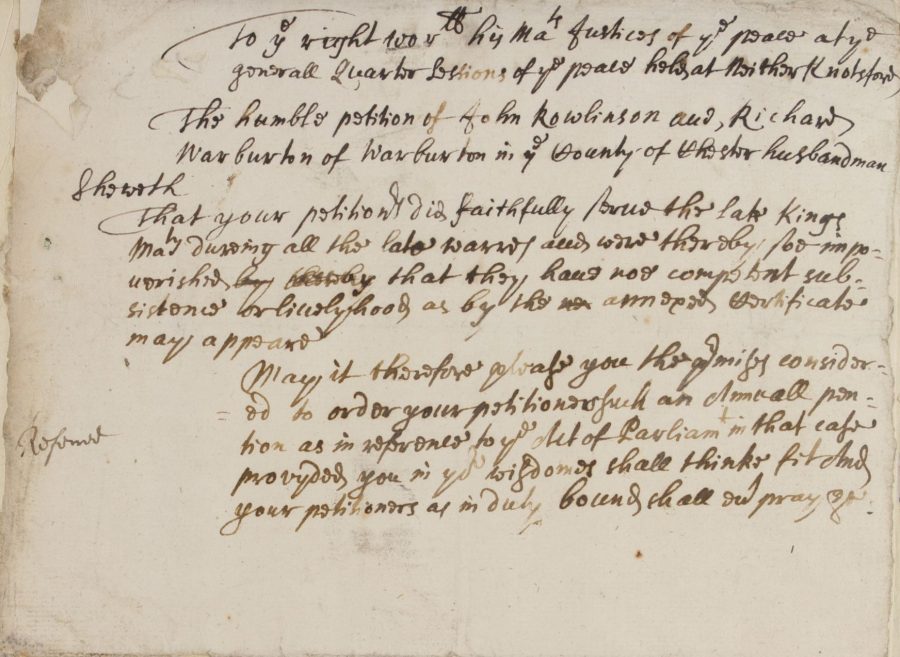 To ye right worth his Mats Justices of ye peace at ye
generall Quarter Sessions of ye peace held at Neither Knotsford
The humble petition of John Rowlinson and Richard
Warburton of Warburton in ye County of Chester husbandman
Sheweth
That your petitionrs did faithfully serve the late Kings
Maty dureing all the late warres and were thereby soe impo-
verished by thereby that they have noe competent sub-
sistence or livelyhood as by the annexed Certificate
may appeare
May it therefore please you the prmises consider-
ed to order your petitioners such an Annuall pen-
tion as in reference to ye Act of Parliamt in that case
provyded you in yor wisdomes shall thinke fit And
your petitioners as in duty bound shall evr pray &c.